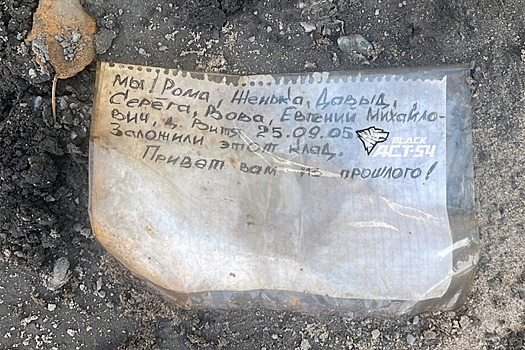 мы! Рома, Женька, Давыд,
Серёга, Вова, Евгений Михайло-
вич, д. Витя 25.09.05
Заложили этот клад.
Привет вам из прошлого!
BLACK
ACT-54